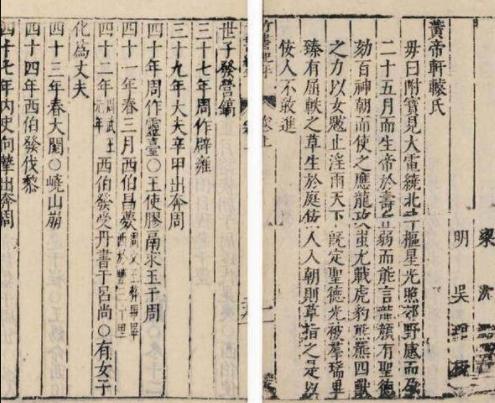 梁 沈
明 吳 琯 校
黃帝軒轅氏
母曰附寶見大電繞北斗樞星光照郊野感而孕
二十五月而生帝於壽丘弱而能言龍顏有聖德
劾百神朝而使之應龍攻蚩尤戰虎豹熊羆四獸
之力以女魃止淫雨天下既定聖德光被羣瑞畢
臻有屈軼之草生於庭佞人入朝則草指之是以
佞人不敢進
世子發營鎬
三十七年周作辟雍
三十九年大夫辛甲出奔周
四十年周作靈臺〇王使膠鬲求玉于周
四十一年春三月西伯昌薨周文王葬畢畢西於豐三十里
四十二年周武王元年西伯發受丹書于呂尚〇有女子
化爲丈夫
四十三年春大閱〇嶢山崩
四十四年西伯發伐黎
四十七年內史向摯出奔周